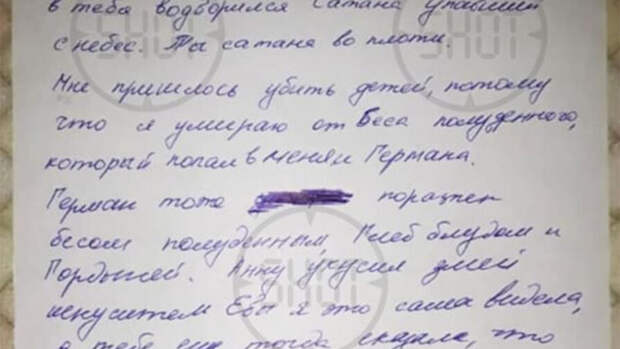 в тебя водворился Сатана упавший
с небес. Ты сатана во плоти.
Мне пришлось убить детей, потому
что я умираю от Беса полуденного,
который попал в меня и Германа.
Герман тоже поражен
бесом полуденным Глеб блудом и
Гордыней. Анну укусил змей
искуситель Евы я это сама видела,
а тебе еще тогда сказала, что
SHOT
SHOT
SHOT